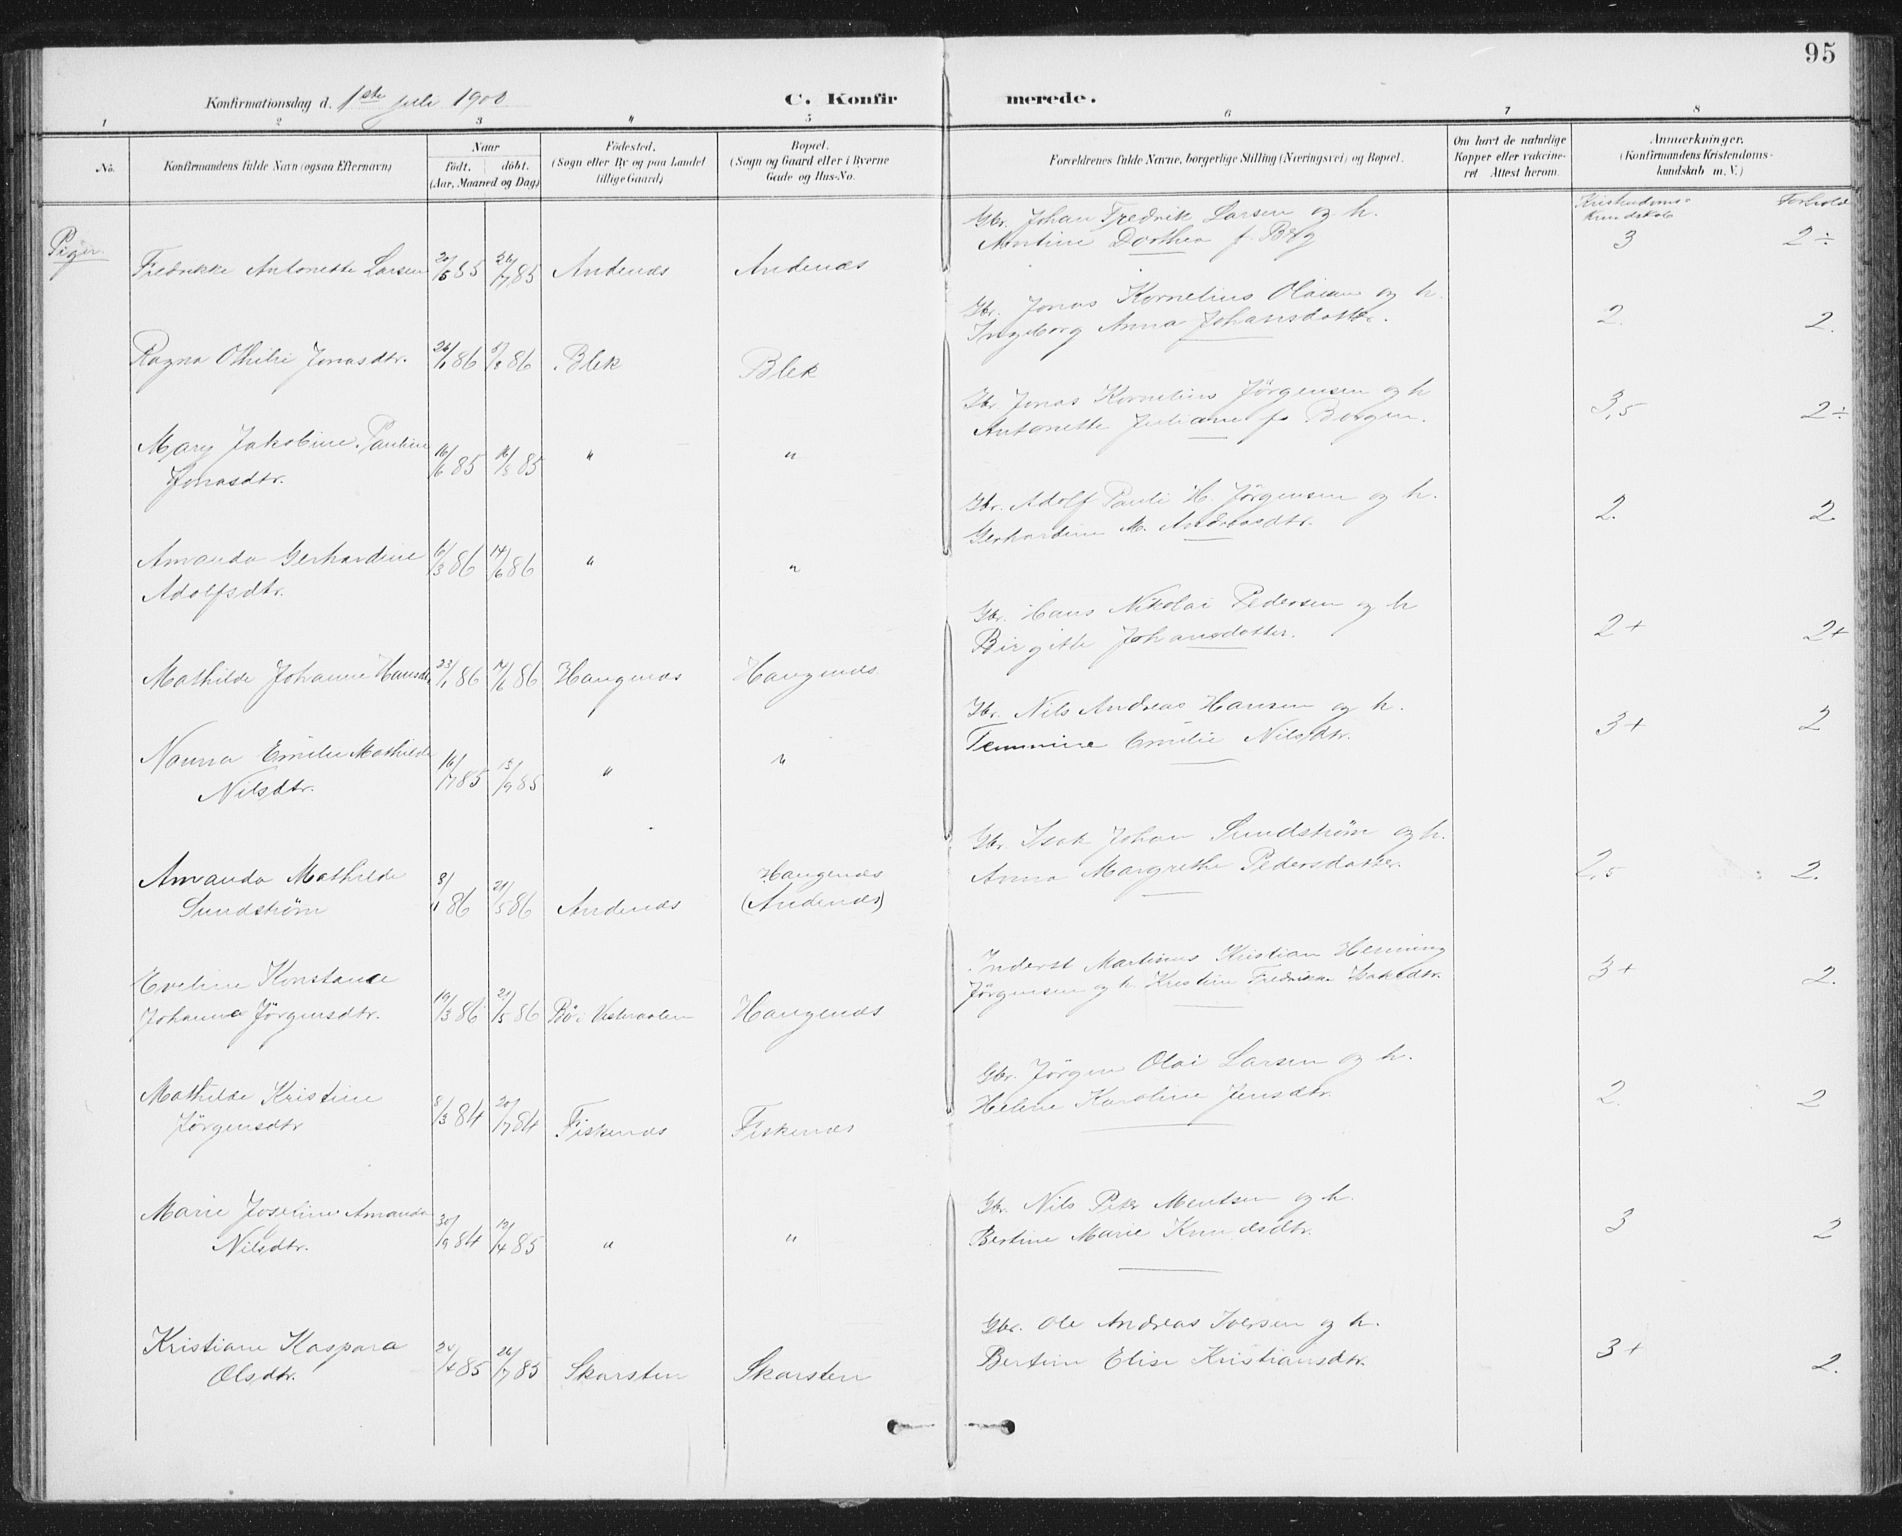 95
Konfirmationsdag d. 1ste juli 1900.
C. Konfirmerede.
1 2 3 4 5 6 7 8
No.
Konfirmandens fulde Navn (ogsaa Efternavn)
Naar
födt. döbt.
(Aar, Maaned og Dag)
Födested.
(Sogn eller By og paa Landet
tillige Gaard)
Bopæl.
(Sogn og Gaard eller i Byerne
Gade og Hus-No.
Forældrenes fulde Navne, borgerlige Stilling (Næringsvei) og Bopæl.
Om havt de naturlige
Kopper eller vakcine-
ret Attest herom.
Anmerkninger.
(Konfirmandens Kristendoms-
kundskab m. V.)
Kristendoms- Forhold
kundskab
Piger.
Gbr. Johan Fredrik Larsen og h.
Martine Dorthea f. Berg 3 2÷
Fredrikke Antonette Larsen 20/5 85 26/7 85 Andenæs Andenæs
Gbr. Jonas Kornelius Olaisen og h.
Ingeborg Anna Johansdatter. 2. 2.
Ragna Othilie Jonasdtr. 26/1 86 86 Blek Blek
Gbr. Jonas Kornelius Jørgensen og h
Antonette Juliane f. Borgen. 3,5 2÷
Mary Jakobine Pauline
Jonasdtr. 16/6 85 16/8 85 " "
Gbr. Adolf Pauli H. Jørgensen og h.
Gerhardine M. Andreasdtr. 2. 2
Amanda Gerhardine 6/3 86 14/6 86 " "
Adolfsdtr.
Gbr. Hans Nikolai Pedersen og h
Birgitte Johansdatter. 2+ 2+
Mathilde Johanne Hansdtr. 23/1 86 17/6 86 Haugenæs Haugenæs
Gbr. Nils Andreas Hansen og h.
Femmine Emilie Nilsdtr. 3+ 2
Nanna Emilie Mathilde
Nilsdtr. 16/7 85 13/9 85 " "
Gbr. Isak Johan Sundstrøm og h.
Anna Margrethe Pedersdatter. 2,5 2.
Amanda Mathilde Haugenæs
Sundstrøm 86 21/5 86 Andenæs (Andenæs)
Inderst Martinus Kristian Henning
Jørgensen og h. Kristine Fredrikke Isaksdtr. 3+ 2.
Eveline Konstance
Johanna Jørgensdtr. 19/3 86 21/5 86 Bø i Vesteraalen Haugenæs
Gbr. Jörgen Olai Larsen og h.
Heline Karoline Jensdtr. 2. 2
Mathilde Kristine
Jörgensdtr 8/3 84 20/7 84 Fiskenæs Fiskenæs
Gbr. Nils Peter Mentsen og h.
Bertine Marie Knudsdtr. 3 2
Marie Josefine Amanda
Nilsdtr. 30/9 84 19/4 85 " "
Gbr. Ole Andreas Iversen og h.
Bertine Elise Kristiansdtr. 3+ 2.
Kristiane Kaspara
Olsdtr. 25/4 85 26/7 85 Skarsten Skarsten